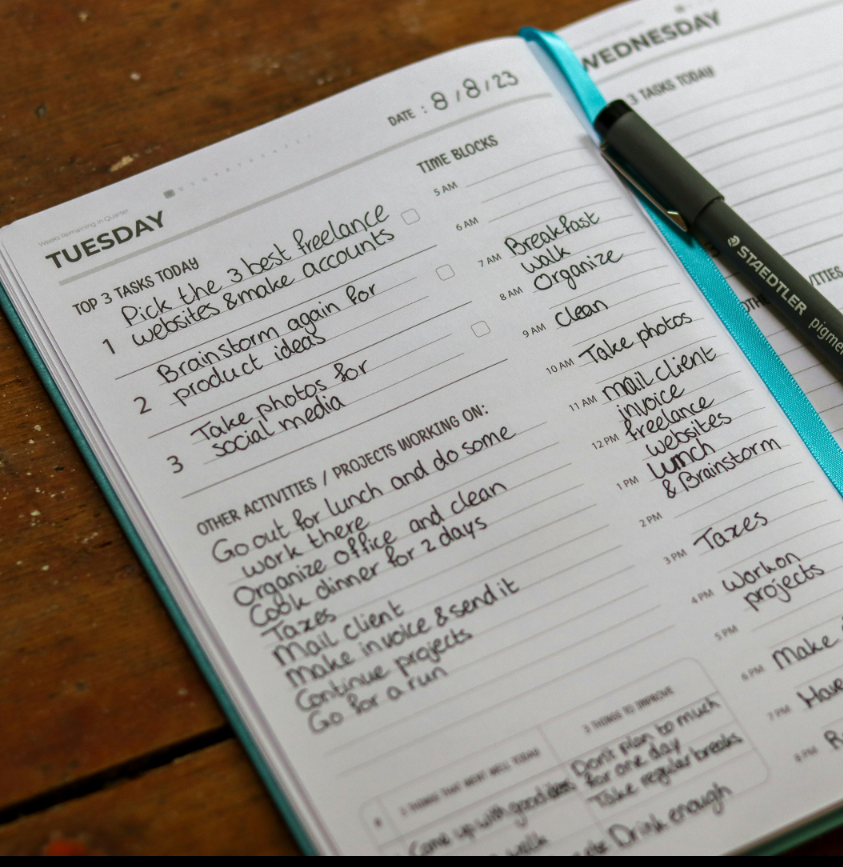 Weeks Remaining in Quarter
TUESDAY
DATE : 8 / 8 / 23
TOP 3 TASKS TODAY
1 Pick the 3 best freelance
websites & make accounts
2 Brainstorm again for
product ideas
3 Take photos for
social media
OTHER ACTIVITIES / PROJECTS WORKING ON:
Go out for lunch and do some
work there
Organize office and clean
Cook dinner for 2 days
Taxes
Mail client
Make invoice & send it
Continue projects
Go for a run
TIME BLOCKS
5 AM
6 AM
7 AM Breakfast
walk
8 AM Organize
9 AM Clean
10 AM Take photos
11 AM Mail client
invoice
12 PM freelance
websites
1 PM Lunch
& Brainstorm
2 PM
3 PM Taxes
4 PM Work on
projects
5 PM
6 PM Make
7 PM Have
8 PM
3 THINGS THAT WENT WELL TODAY
Came up with good
walk
3 THINGS TO IMPROVE
Don't plan to much
for one day
Take regular breaks
Drink enough
WEDNESDAY
3 TASKS TODAY
STAEDTLER